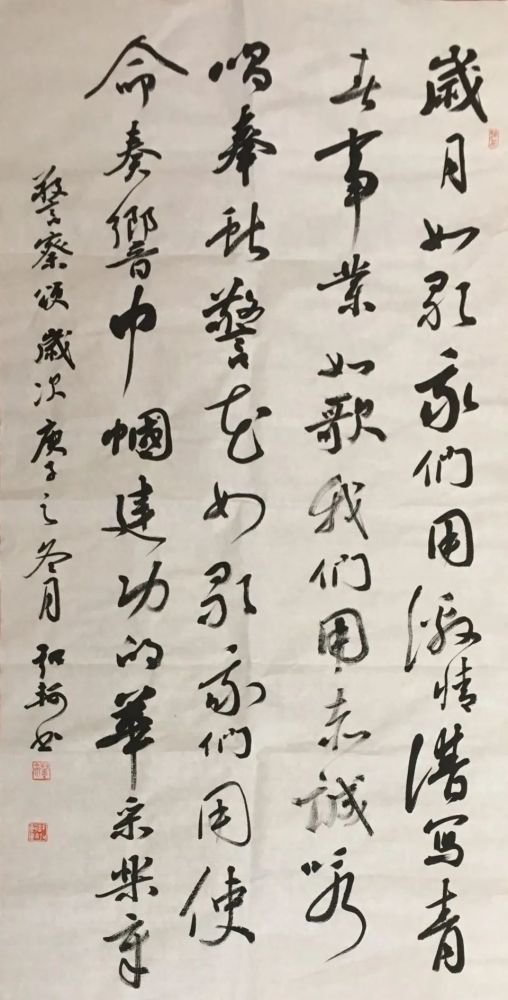 歲月如歌我們用激情譜寫青
春事業如歌我們用赤誠咏
唱奉獻警花如歌我們用使
命奏響巾幗建功的華采樂章
警察頌歲次庚子之冬月 書